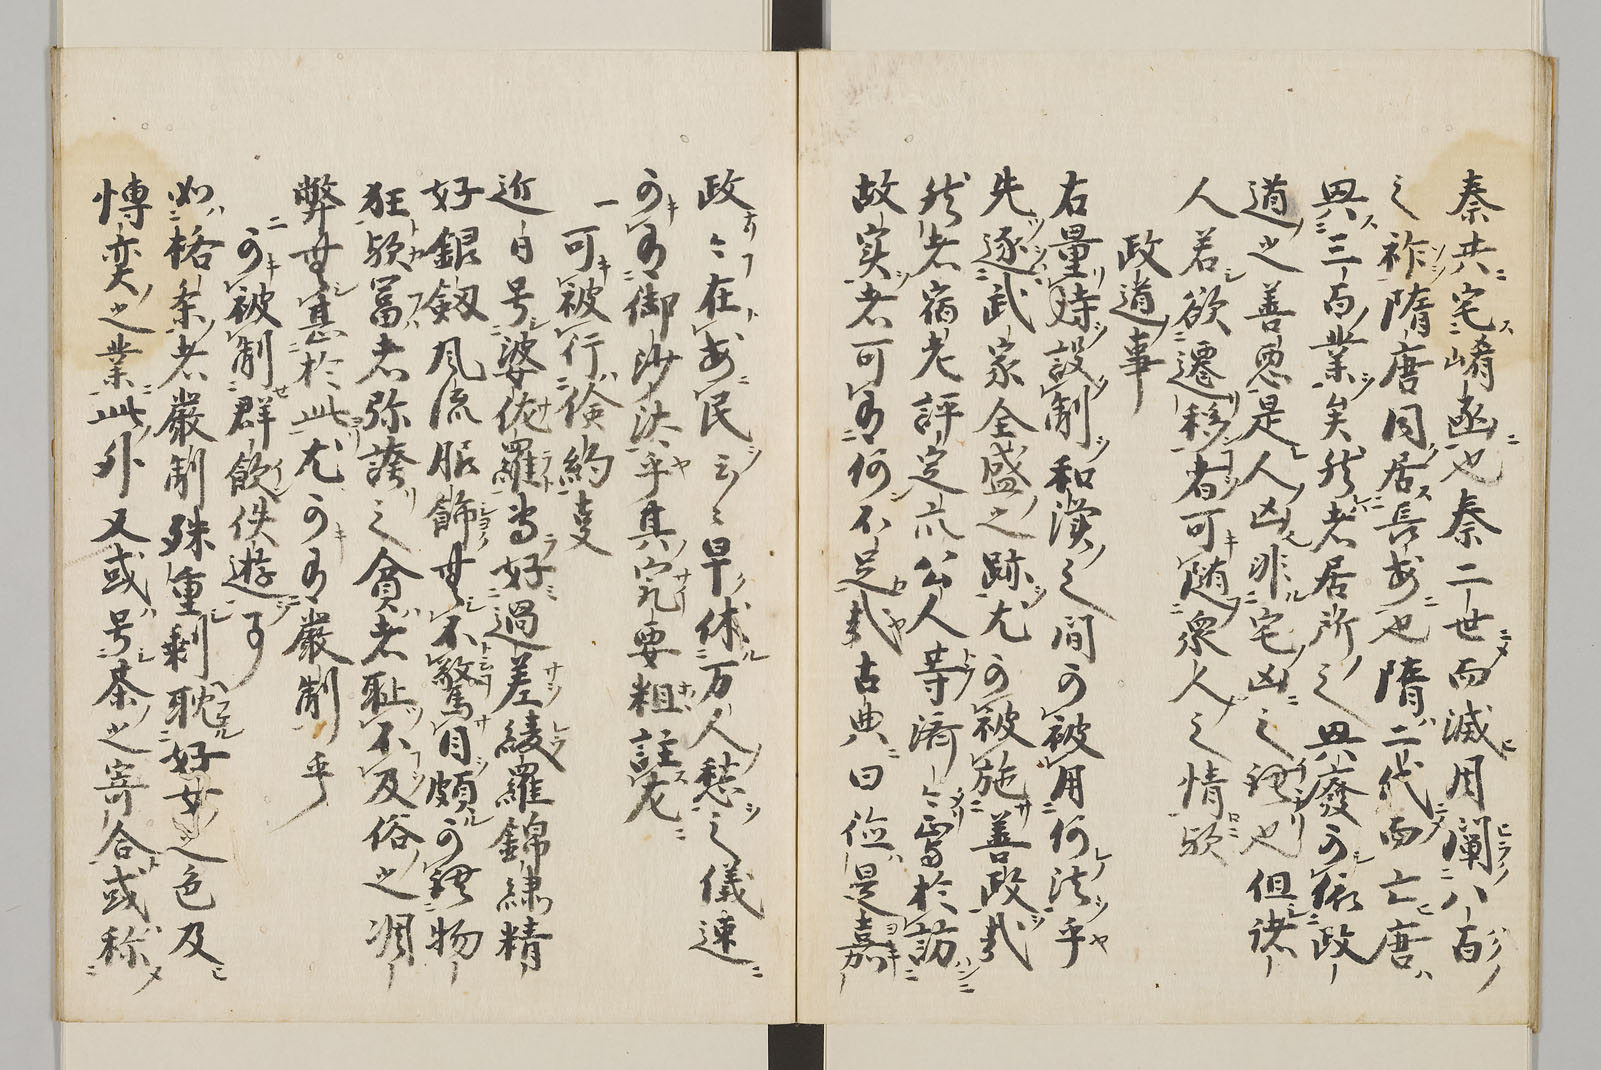 秦共宅崤函也秦二世而滅周闡八百
之祚隋唐同居長安也隋二代而亡唐
興三百業矣然者居所之興廃可依政
道之善悪是人凶非宅凶之謂也但諸
人若欲遷移者可随衆人之情歟
政道事
右量時設制和漢之間可被用何法乎
先逐武家全盛之跡尤可被施善政哉
然者宿老評定衆公人等済々焉於訪
故実者可有何不足哉古典曰徳是嘉
政々在安民云々早休万人愁之儀速
可有御沙汰乎其宗要粗註左
一可被行倹約事
近日号婆佐羅専好過差綾羅錦繍精
好銀剱風流服飾無不驚目頗可謂物
狂歟冨者弥誇之貧者恥不及俗之凋
弊無甚於此尤可有厳制乎
一可被制群飲佚遊事
如格条者厳制殊重剰耽好女之色及
博奕之業此外又或号茶之寄合或称